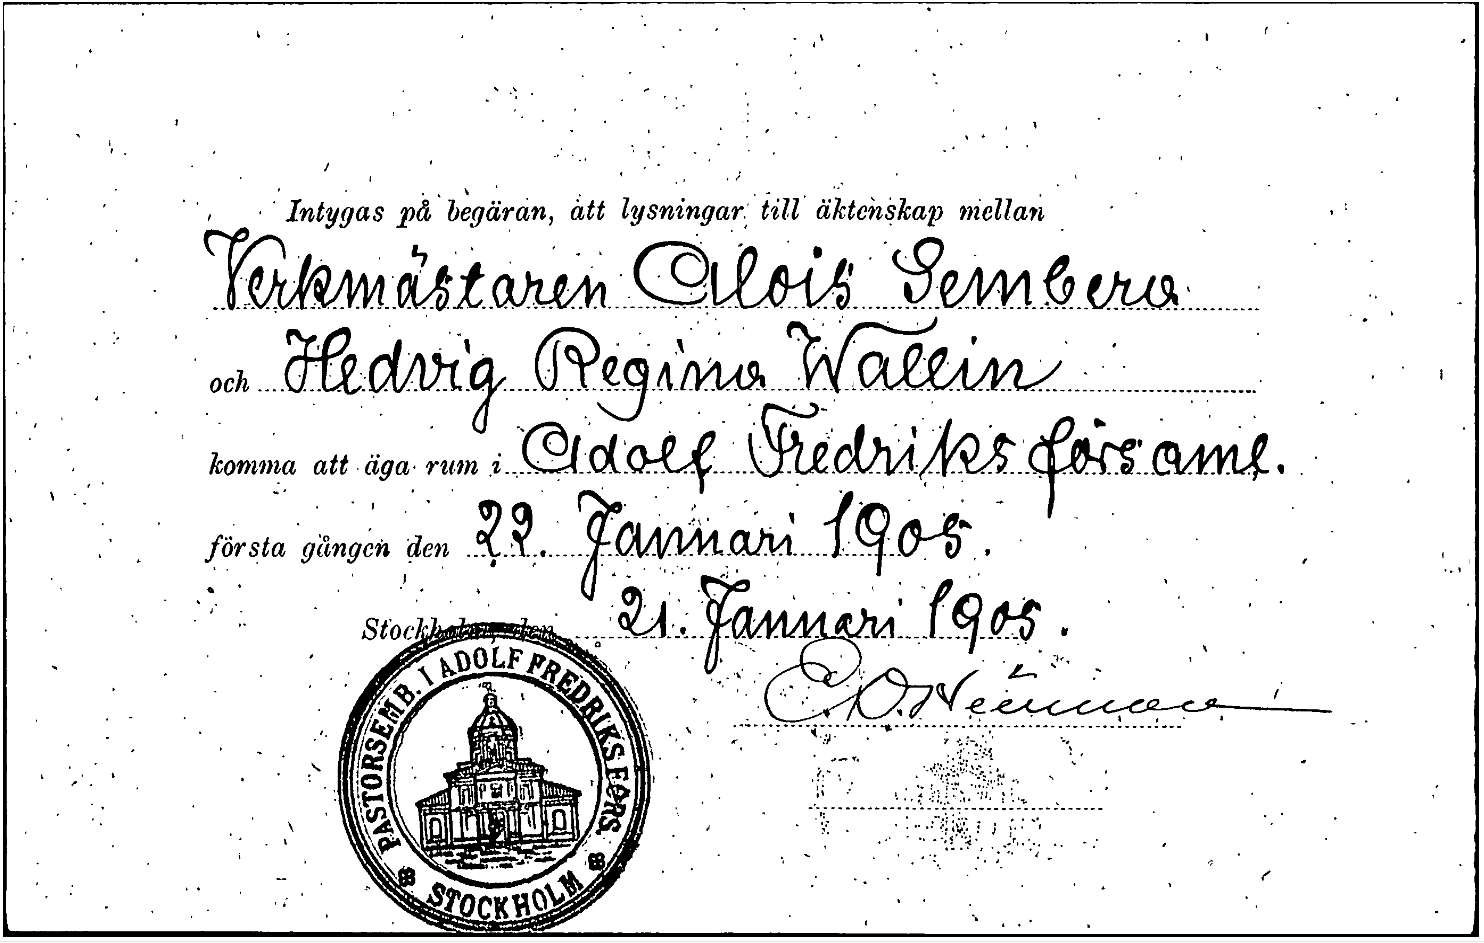 Intygas på begäran, att lysningar till äktenskap mellan
Verkmästaren Alois Sembera
och Hedvig Regina Wallin
komma att äga rum i Adolf Fredriks församl.
första gången den 22. Januari 1905.
Stockholm, den 21. Januari 1905.
E. O. Neüman
PASTORSEMB. I ADOLF FREDRIKS FÖRS.
STOCKHOLM